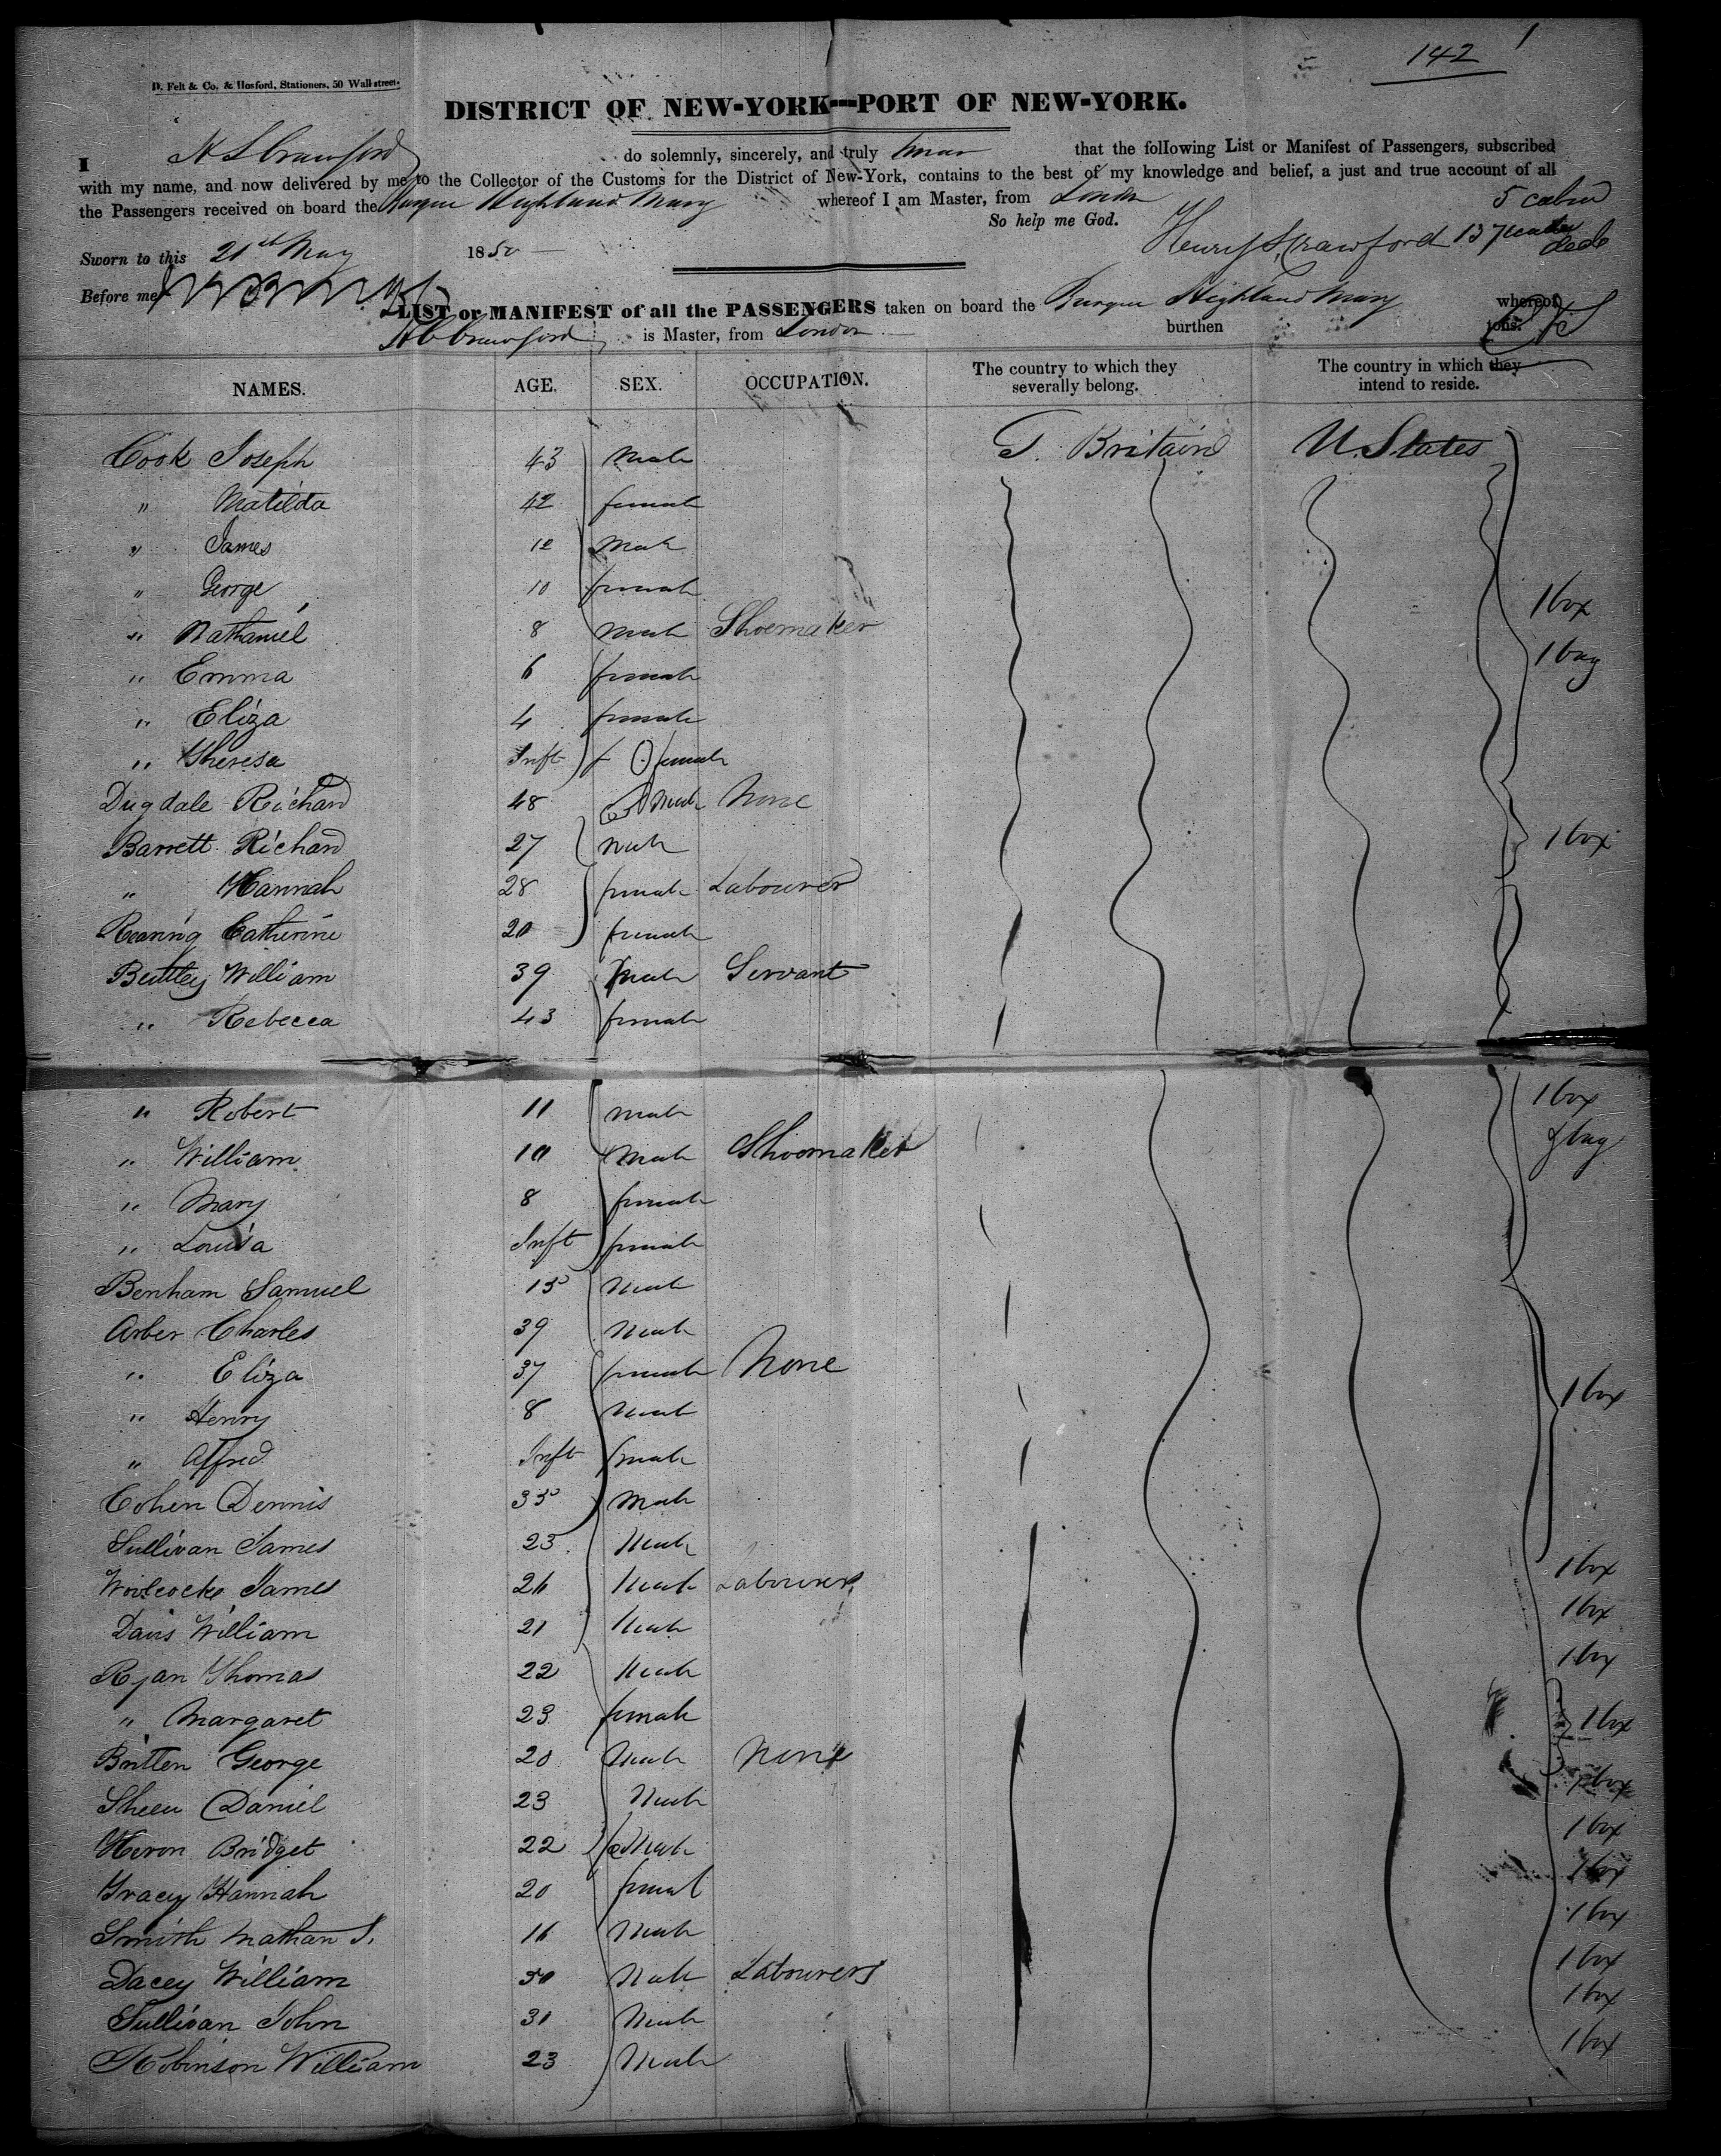 142
D. Felt & Co. & Hosford, Stationers, 50 Wall-street.
DISTRICT OF NEW-YORK---PORT OF NEW-YORK.
I H S Crawford do solemnly, sincerely, and truly swear that the following List or Manifest of Passengers, subscribed
with my name, and now delivered by me to the Collector of the Customs for the District of New-York, contains to the best of my knowledge and belief, a just and true account of all
the Passengers received on board the Barque Highland Mary whereof I am Master, from London
5 cabin
So help me God.
Henry S. Crawford 137
Sworn to this 21st May 1850
Before me
LIST or MANIFEST of all the PASSENGERS taken on board the Barque Highland Mary whereof
H S Crawford is Master, from London burthen tons.
NAMES. AGE. SEX. OCCUPATION. The country to which they severally belong. The country in which they intend to reside.
Cook Joseph 43 Male G. Britain U. States
" Matilda 42 female
" James 12 Male
" George 10 female 1 box
" Nathaniel 8 Male Shoemaker
" Emma 6 female 1 bag
" Eliza 4 female
" Theresa Inft female
Dugdale Richard 48 Male None
Barrett Richard 27 Male 1 box
" Hannah 28 female Labourer
Catherine 20 female
William 39 Male Servant
" Rebecca 43 female
" Robert 11 Male 1 box
" William 10 Male Shoemaker bag
" Mary 8 female
" Louisa Inft female
Benham Samuel 15 Male
Arber Charles 39 Male
" Eliza 37 female None 1 box
" Henry 8 Male
" Alfred Inft Male
Cohen Dennis 35 Male
Sullivan James 25 Male 1 box
Woolcocke James 26 Male Labourers
Davis William 21 Male 1 box
Ryan Thomas 22 Male 1 box
" Margaret 23 female 1 box
Britten George 20 Male None
Sheen Daniel 23 Male 1 box
Heron Bridget 22 Male 1 box
Gracey Hannah 20 femal 1 box
Smith Nathan S. 16 Male 1 box
Dacey William 50 Male Labourers 1 box
Sullivan John 31 Male 1 box
Robinson William 23 Male 1 box